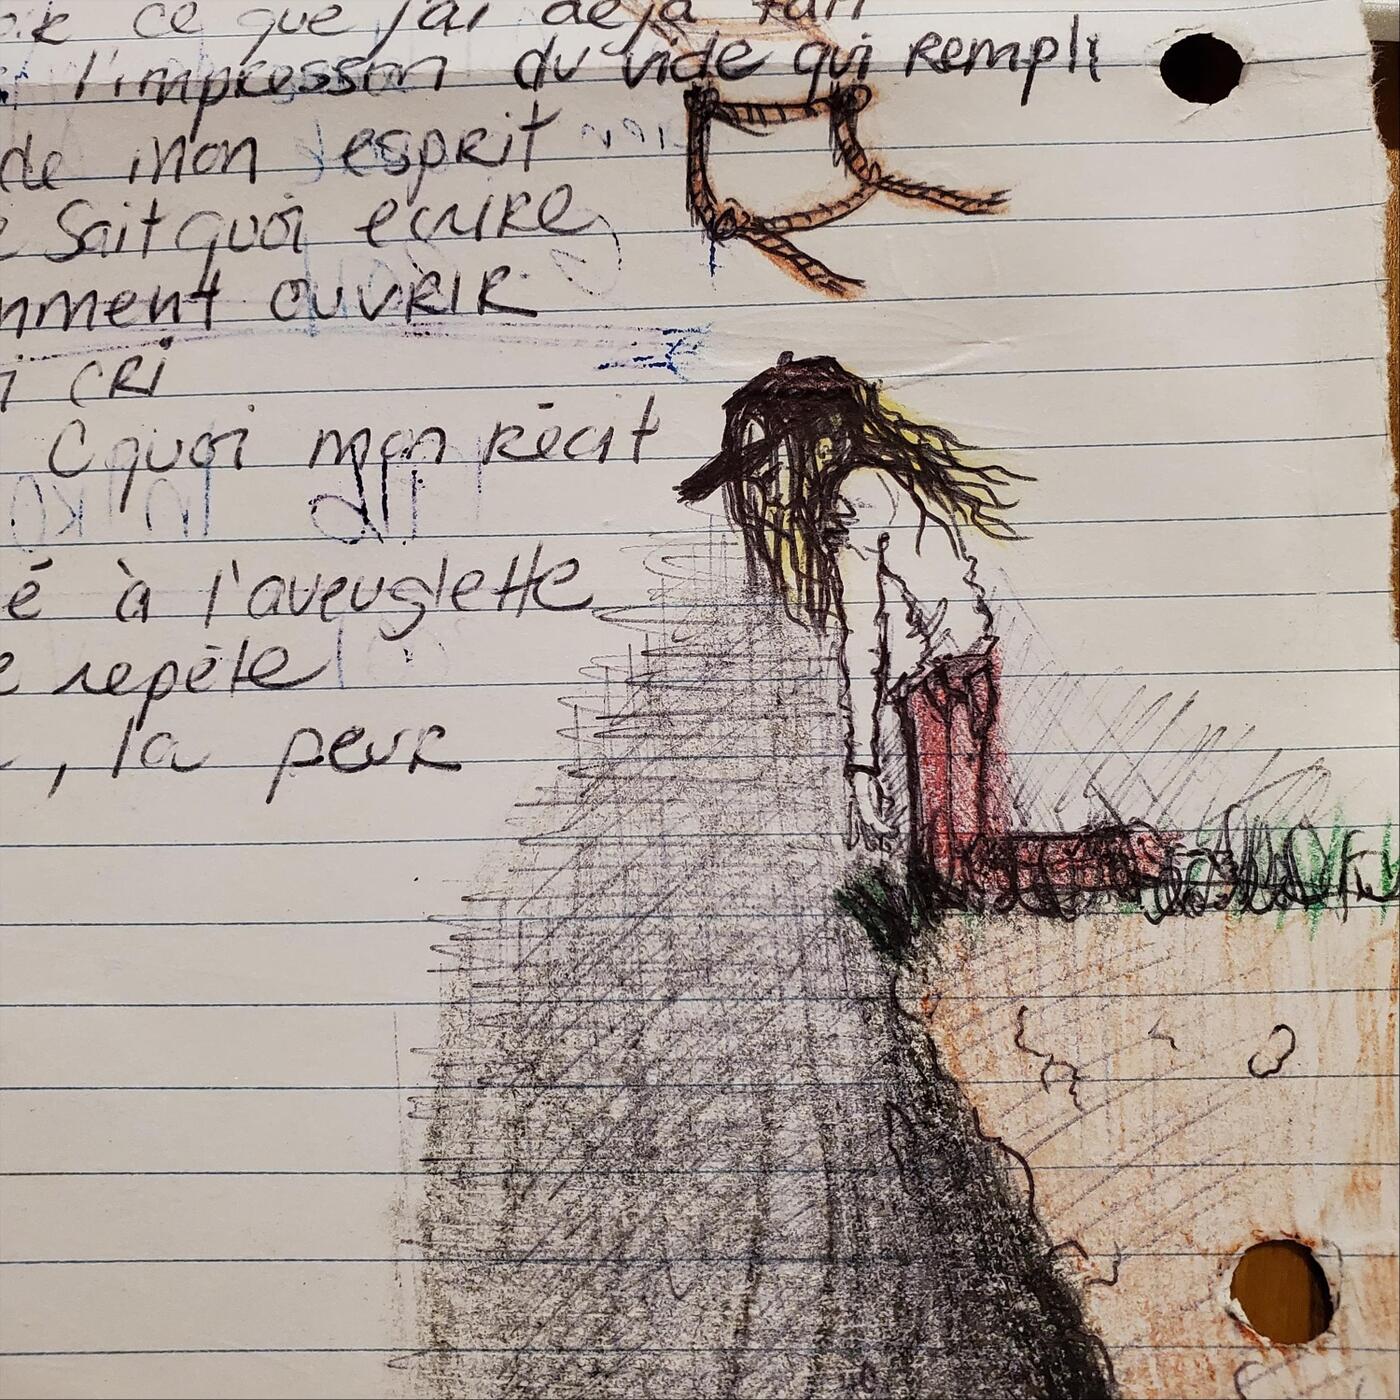 ce que j'ai déjà fait
l'impression du vide qui rempli
de mon esprit
sait quoi ecrire
comment ouvrir
cri
C quoi mon récit
é à l'aveuglette
repète
, la peur